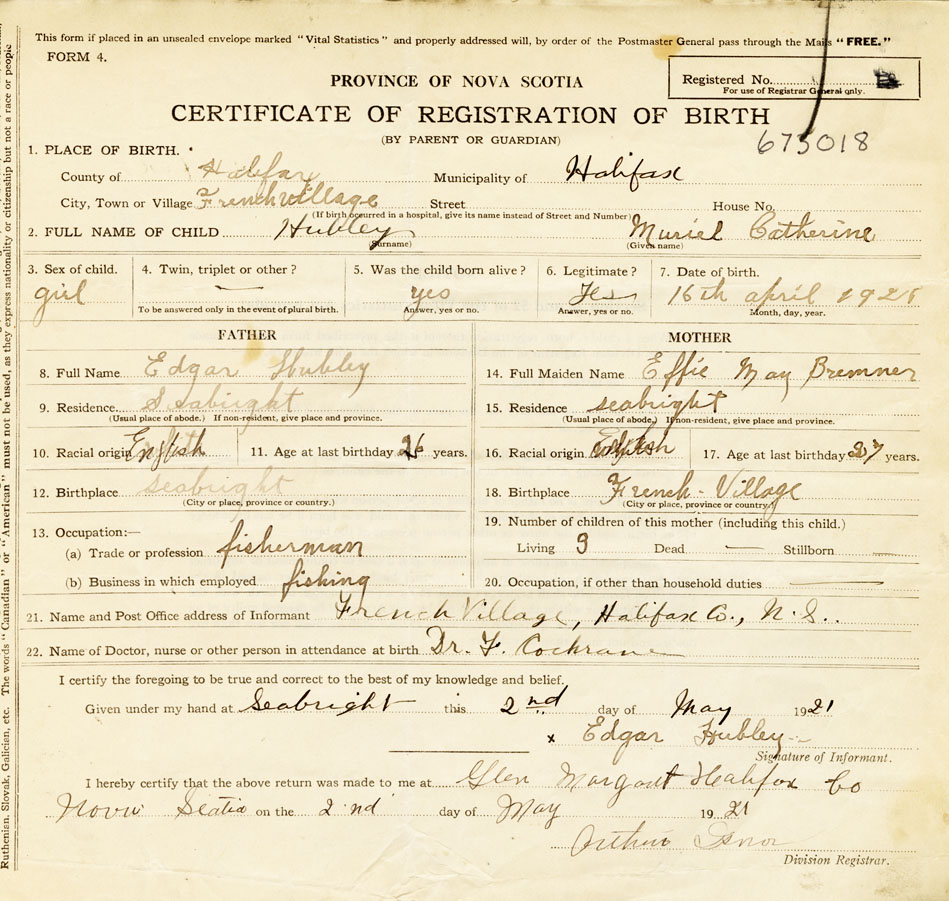 This form if placed in an unsealed envelope marked "Vital Statistics" and properly addressed will, by order of the Postmaster General pass through the Mails "FREE."
FORM 4.
PROVINCE OF NOVA SCOTIA
Registered No.
For use of Registrar General only.
CERTIFICATE OF REGISTRATION OF BIRTH
(BY PARENT OR GUARDIAN)
673018
1. PLACE OF BIRTH.
County of Halifax Municipality of Halifax
City, Town or Village Frenchvillage Street House No.
(If birth occurred in a hospital, give its name instead of Street and Number)
2. FULL NAME OF CHILD Hubley Muriel Catherine
(Surname) (Given name)
3. Sex of child. 4. Twin, triplet or other? 5. Was the child born alive? 6. Legitimate? 7. Date of birth.
girl — yes Yes 16th april
To be answered only in the event of plural birth. Answer, yes or no. Answer, yes or no. Month, day, year.
FATHER
8. Full Name Edgar Hubley
9. Residence Seabright
(Usual place of abode.) If non-resident, give place and province.
10. Racial origin English 11. Age at last birthday 26 years.
12. Birthplace seabright
(City or place, province or country.)
13. Occupation:—
(a) Trade or profession fisherman
(b) Business in which employed fishing
MOTHER
14. Full Maiden Name Effie May Bremner
15. Residence seabright
(Usual place of abode.) If non-resident, give place and province.
16. Racial origin 17. Age at last birthday 27 years.
18. Birthplace French-Village
(City or place, province or country.)
19. Number of children of this mother (including this child.)
Living 3 Dead — Stillborn —
20. Occupation, if other than household duties —
21. Name and Post Office address of Informant French Village, Halifax Co., N.S..
22. Name of Doctor, nurse or other person in attendance at birth Dr. F. Cochrane
I certify the foregoing to be true and correct to the best of my knowledge and belief.
Given under my hand at Seabright this 2nd day of May 1921
x Edgar Hubley
Signature of Informant.
I hereby certify that the above return was made to me at Glen Margaret Halifax Co
Nova Scotia on the 2nd day of May 1921
Arthur
Division Registrar.
Ruthenian, Slovak, Galician, etc. The words "Canadian" or "American" must not be used, as they express nationality or citizenship but not a race or people